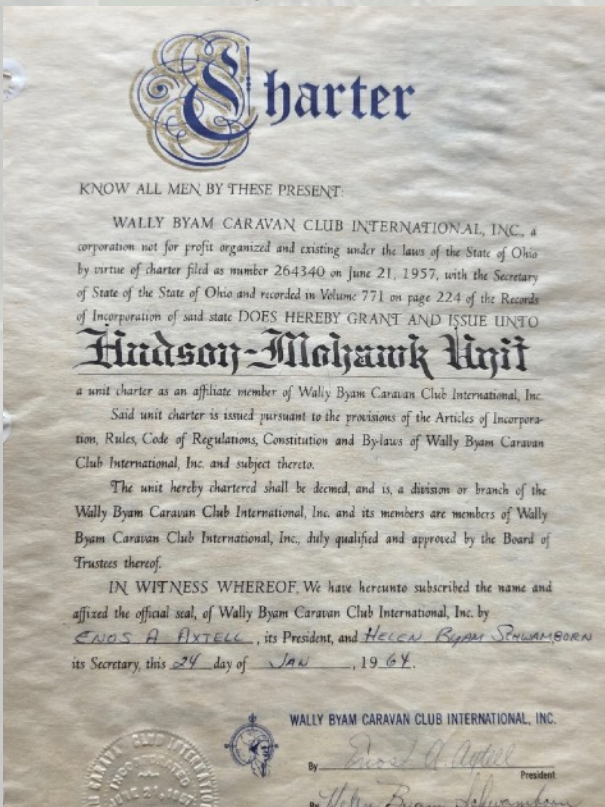 Charter
KNOW ALL MEN BY THESE PRESENT:
WALLY BYAM CARAVAN CLUB INTERNATIONAL, INC., a
corporation not for profit organized and existing under the laws of the State of Ohio
by virtue of charter filed as number 264340 on June 21, 1957, with the Secretary
of State of the State of Ohio and recorded in Volume 771 on page 224 of the Records
of Incorporation of said state DOES HEREBY GRANT AND ISSUE UNTO
Hudson-Mohawk Unit
a unit charter as an affiliate member of Wally Byam Caravan Club International, Inc.
Said unit charter is issued pursuant to the provisions of the Articles of Incorpora-
tion, Rules, Code of Regulations, Constitution and By-laws of Wally Byam Caravan
Club International, Inc. and subject thereto.
The unit hereby chartered shall be deemed, and is, a division or branch of the
Wally Byam Caravan Club International, Inc. and its members are members of Wally
Byam Caravan Club International, Inc., duly qualified and approved by the Board of
Trustees thereof.
IN WITNESS WHEREOF, We have hereunto subscribed the name and
affixed the official seal, of Wally Byam Caravan Club International, Inc. by
ENOS A AXTELL, its President, and HELEN BYAM SCHWAMBORN
its Secretary, this 24 day of JAN, 1964.
WALLY BYAM CARAVAN CLUB INTERNATIONAL, INC.
By Enos A. Axtell
President
By Helen Byam Schwamborn
CARAVAN CLUB INTERNATION
INCORPORATED
JUNE 21, 1957